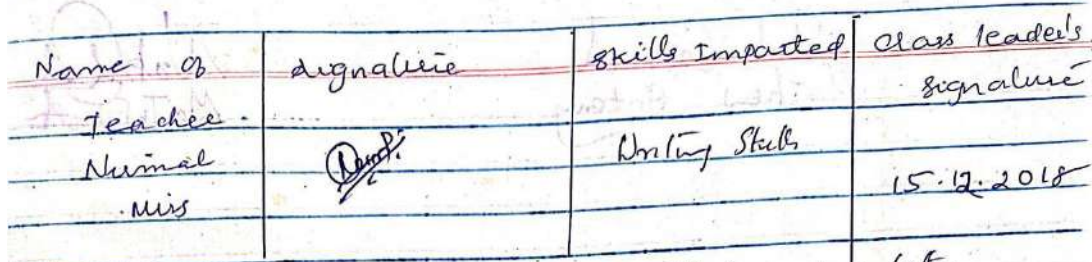 Name of
Teacher.
signature
skills Imparted
class leader's
signature
Nirmal
Miss
Writing Skills
15.12.2018